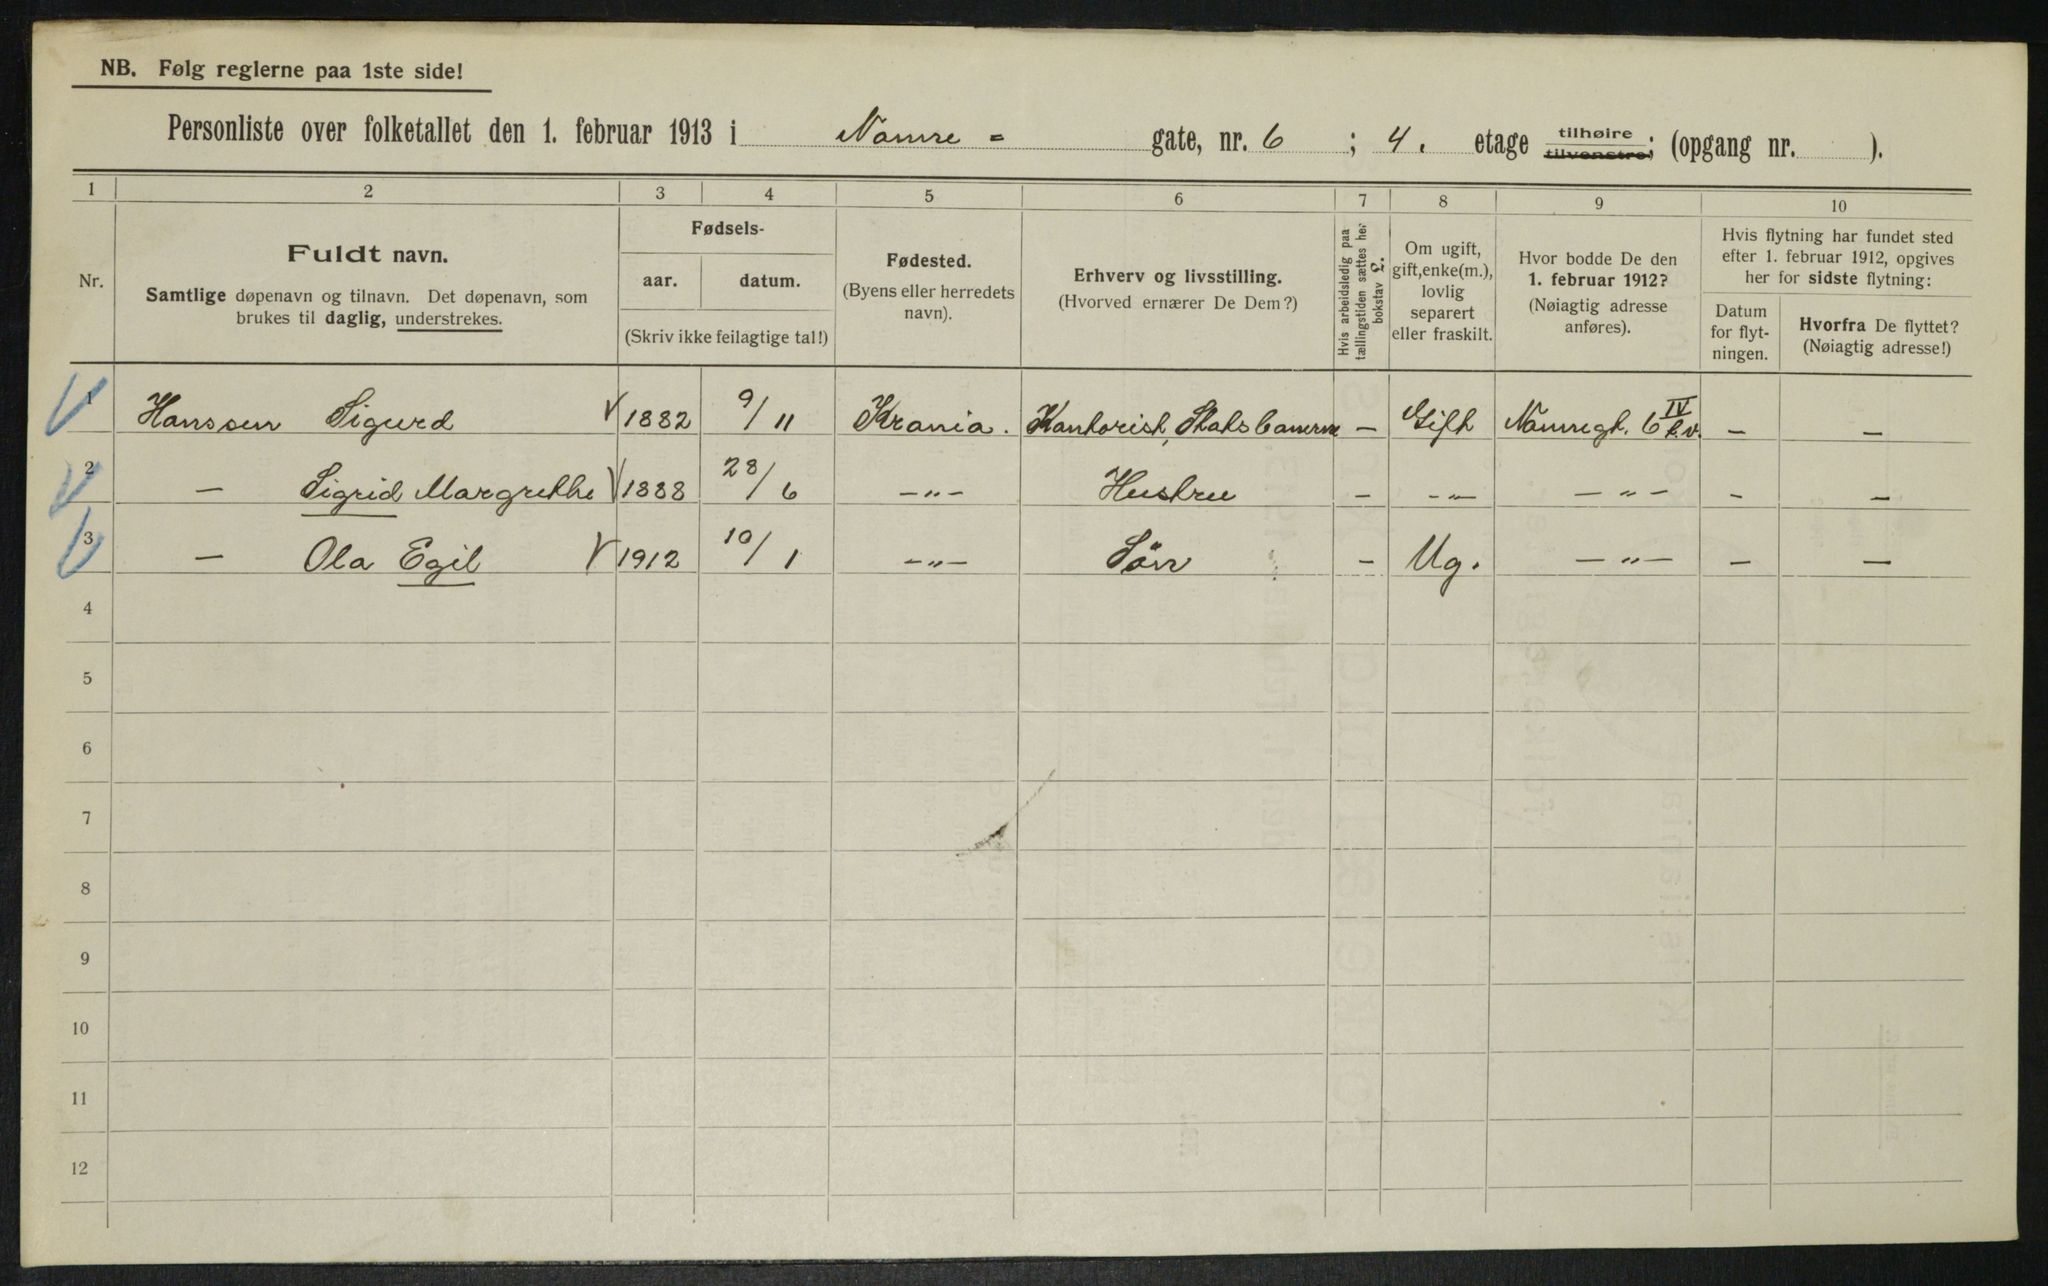 NB. Følg reglerne paa 1ste side!
Personliste over folketallet den 1. februar 1913 i Namre = gate, nr. 6 ; 4. etage tilhøire tilvenstre; (opgang nr. ).
1 2 3 4 5 6 7 8 9 10
Nr.
Fuldt navn.
Samtlige døpenavn og tilnavn. Det døpenavn, som
brukes til daglig, understrekes.
Fødsels-
aar. datum.
(Skriv ikke feilagtige tal!)
Fødested.
(Byens eller herredets
navn).
Erhverv og livsstilling.
(Hvorved ernærer De Dem?)
Hvis arbeidsledig paa
tællingstiden sættes her
bokstav L.
Om ugift,
gift, enke(m.),
lovlig
separert
eller fraskilt.
Hvor bodde De den
1. februar 1912?
(Nøiagtig adresse
anføres).
Hvis flytning har fundet sted
efter 1. februar 1912, opgives
her for sidste flytning:
Datum
for flyt-
ningen.
Hvorfra De flyttet?
(Nøiagtig adresse!)
1 Hanssen Sigurd V 1882 9/11 Krania. Kontorist, Statsbanerne — Gift Namregt. 6 IV — —
2 — Sigrid Margrethe V 1888 28/6 —"— Hustru — —"— —"— — —
3 — Ola Egil V 1912 10/1 —"— Sön — Ug. —"— — —
4
5
6
7
8
9
10
11
12